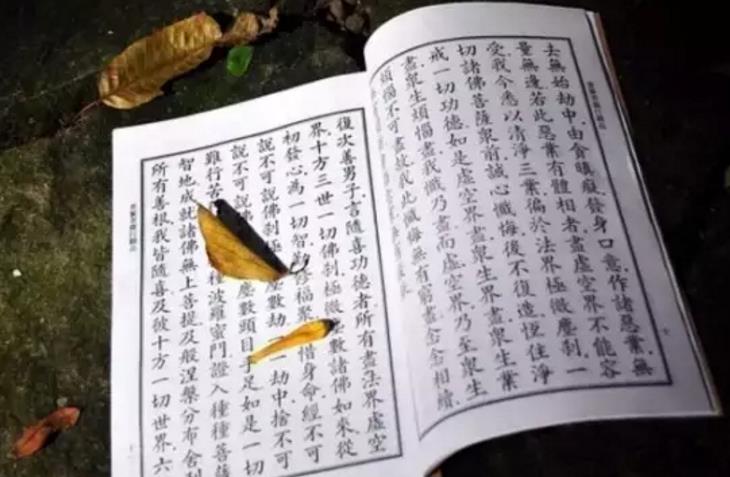 去無始劫中，由貪瞋癡，發身口意，作諸惡業，無
量無邊，若此惡業有體相者，盡虛空界不能容
受。我今悉以清淨三業，徧於法界極微塵剎，一
切諸佛菩薩眾前，誠心懺悔，後不復造，恆住淨
戒一切功德。如是虛空界盡，眾生界盡，眾生業
盡，眾生煩惱盡，我懺乃盡，而虛空界乃至眾生
煩惱不可盡故，我此懺悔無有窮盡。念念相續，
復次善男子，言隨喜功德者，所有盡法界虛空
界，十方三世一切佛剎極微塵數諸佛如來，從
初發心，為一切智，修福聚，惜身命，經不可
說不可說佛剎極數劫，一劫中，捨不可
說不可說佛剎塵數頭目手足，如是一切
難行苦種波羅蜜門，證入種種菩薩
智地，成就諸佛無上菩提，及般涅槃，分布舍利，
所有善根，我皆隨喜。及彼十方一切世界，六